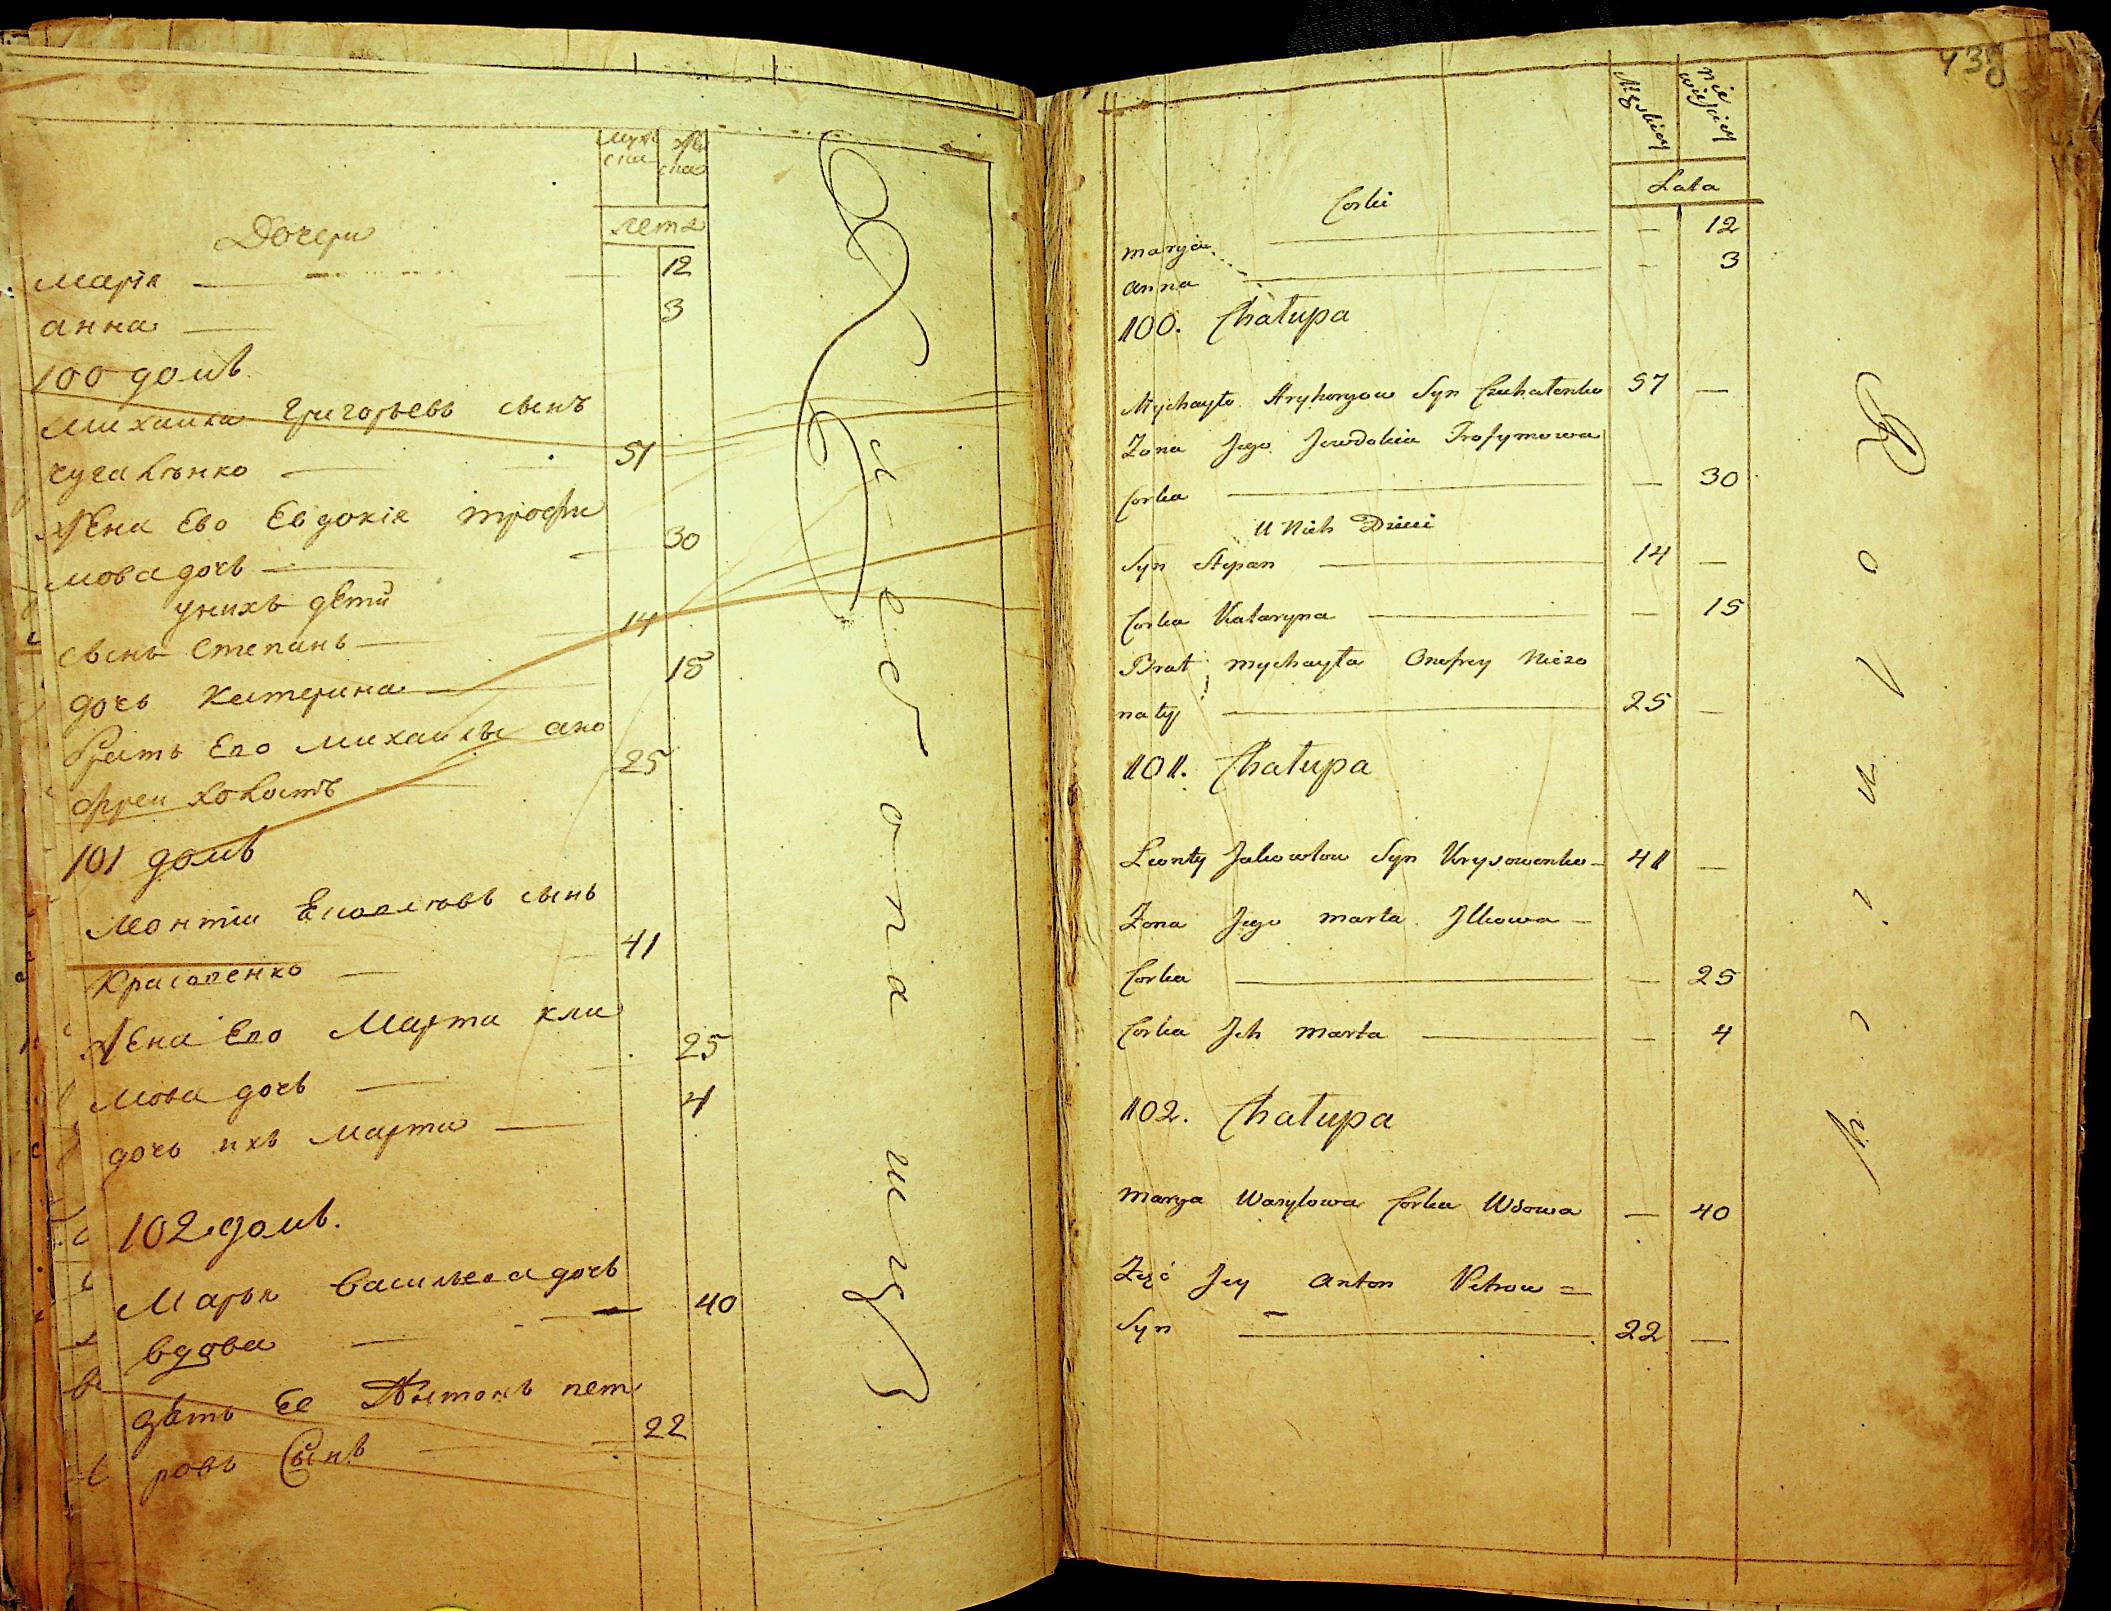 муж
ска
лета
Дочери
Марія — 12
анна — 3
100 домъ
Михаила Григорьевъ сынъ
чугаленко — 57
жена Ево Евдокія трофи
мова дочь — 30
унихъ дети
сынъ Степанъ — 14
дочь Катерина — 15
братъ Его Михаила ано
фреи холостъ — 25
101 домъ
Леонтіи сынъ
Красовенко — 41
жена Его Марта кли
мова дочь — 25
дочь ихъ Марта — 4
102 домъ.
Марья васильева дочь
вдова — 40
зять Ее Антонъ пет
ровъ Сынъ — 22
439
Męskiey
Lata
Corki
marya — — 12
anna — — 3
100. Chałupa
Mychayło Hryhoryow Syn Czuhalenko 57 —
Zona Jego Jewdokia Trofymowa
Corka — — 30
U Nich Dzieci
Syn Stepan — 14 —
Corka Kataryna — — 15
Brat mychayła Onofrey Niezo
naty — 25 —
101. Chałupa
Leonty Jakowlow Syn Krysowenko — 41 —
Zona Jego marta Jlkowa —
Corka — — 25
Corka Jch marta — — 4
102. Chałupa
marya Wasylowa Corka Wdowa — 40
Zęć Jey anton Petrow =
Syn — 22 —